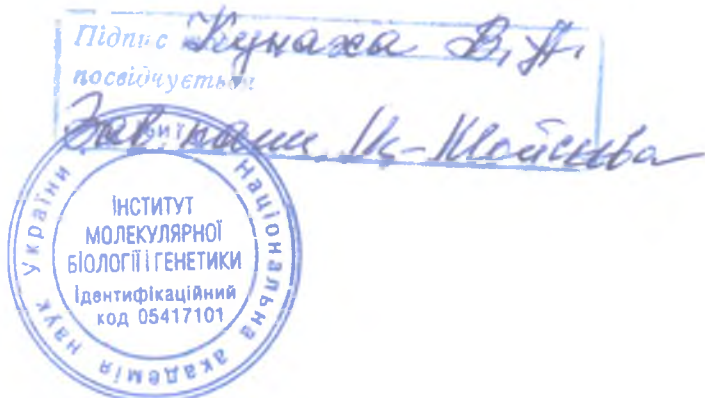 Підпис Кунаха В.А.
посвідчується
Зав. канц.
Національна академія наук України
ІНСТИТУТ
МОЛЕКУЛЯРНОЇ
БІОЛОГІЇ І ГЕНЕТИКИ
Ідентифікаційний
код 05417101